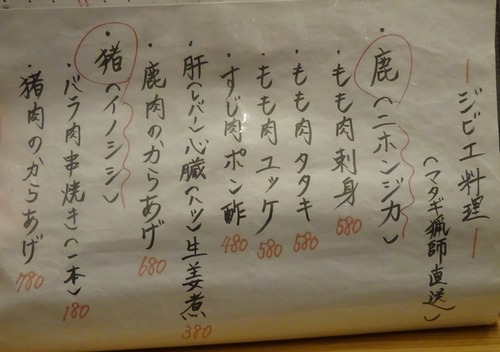 ージビエ料理ー
(マタギ猟師直送)
・鹿(ニホンジカ)
もも肉刺身 580
・もも肉タタキ 580
・もも肉ユッケ 580
・すじ肉ポン酢 480
・肝(レバ)心臓(ハツ)生姜煮 380
・鹿肉のからあげ 680
・猪(イノシシ)
・バラ肉串焼き(一本) 180
・猪肉のからあげ 780